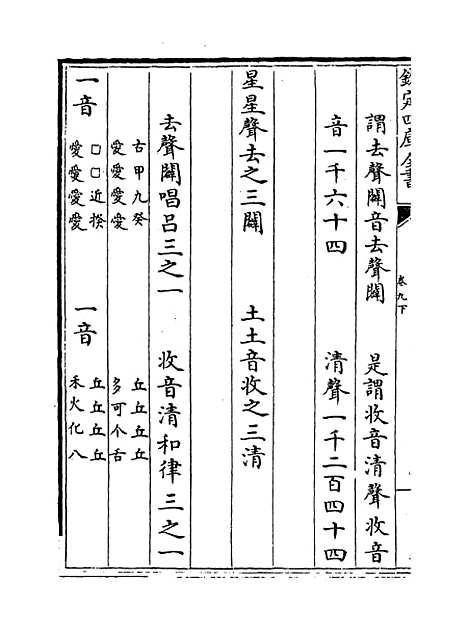 欽定四庫全書
卷九下
謂去聲闢音去聲闢　是謂收音清聲收音
音一千六十四　清聲一千二百四十四
星星聲去之三闢　土土音收之三清
去聲闢唱呂三之一　收音清和律三之一
古甲九癸　丘丘丘丘
愛愛愛愛　多可个舌
一音　□□近揆　一音　丘丘丘丘
愛愛愛愛　禾火化八